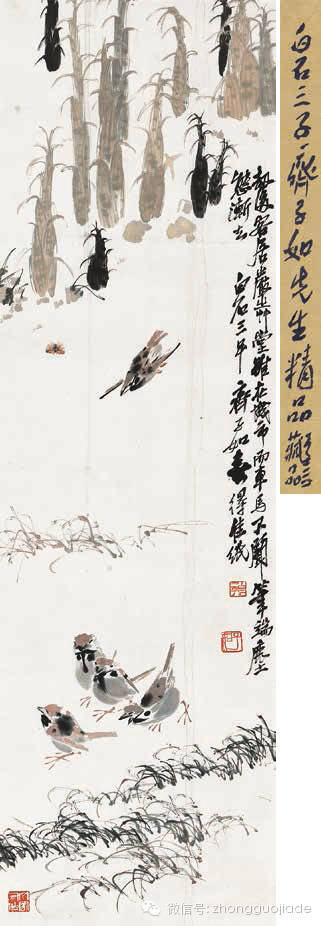 白石三子齊子如先生精品
客居巖堂雖在城市而車馬不鬧筆端塵
態漸去 白石三子齊子如喜得佳紙
微信号: zhongguojiade